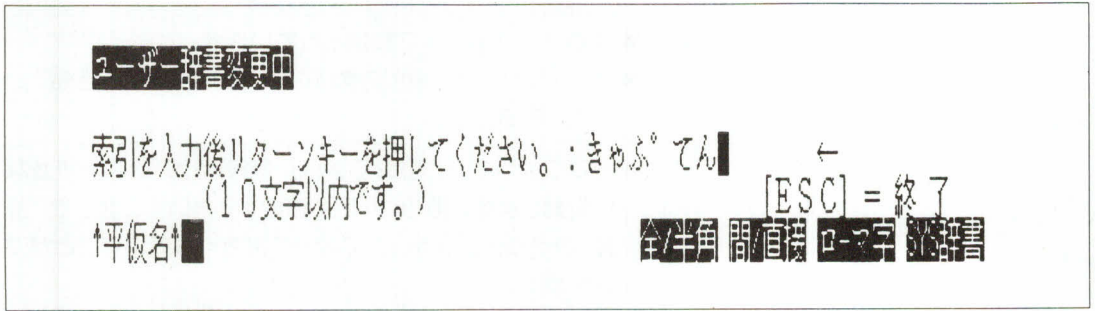 ユーザー辞書変更中
索引を入力後リターンキーを押してください。:きゃぷてん ←
(10文字以内です。) [ESC]=終了
↑平仮名↑ 全/半角 間/直接 ローマ字 辞書